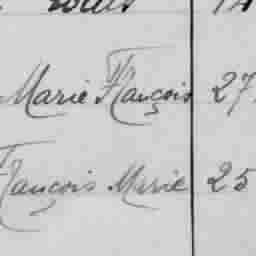 Marie François 27
François Marie 25